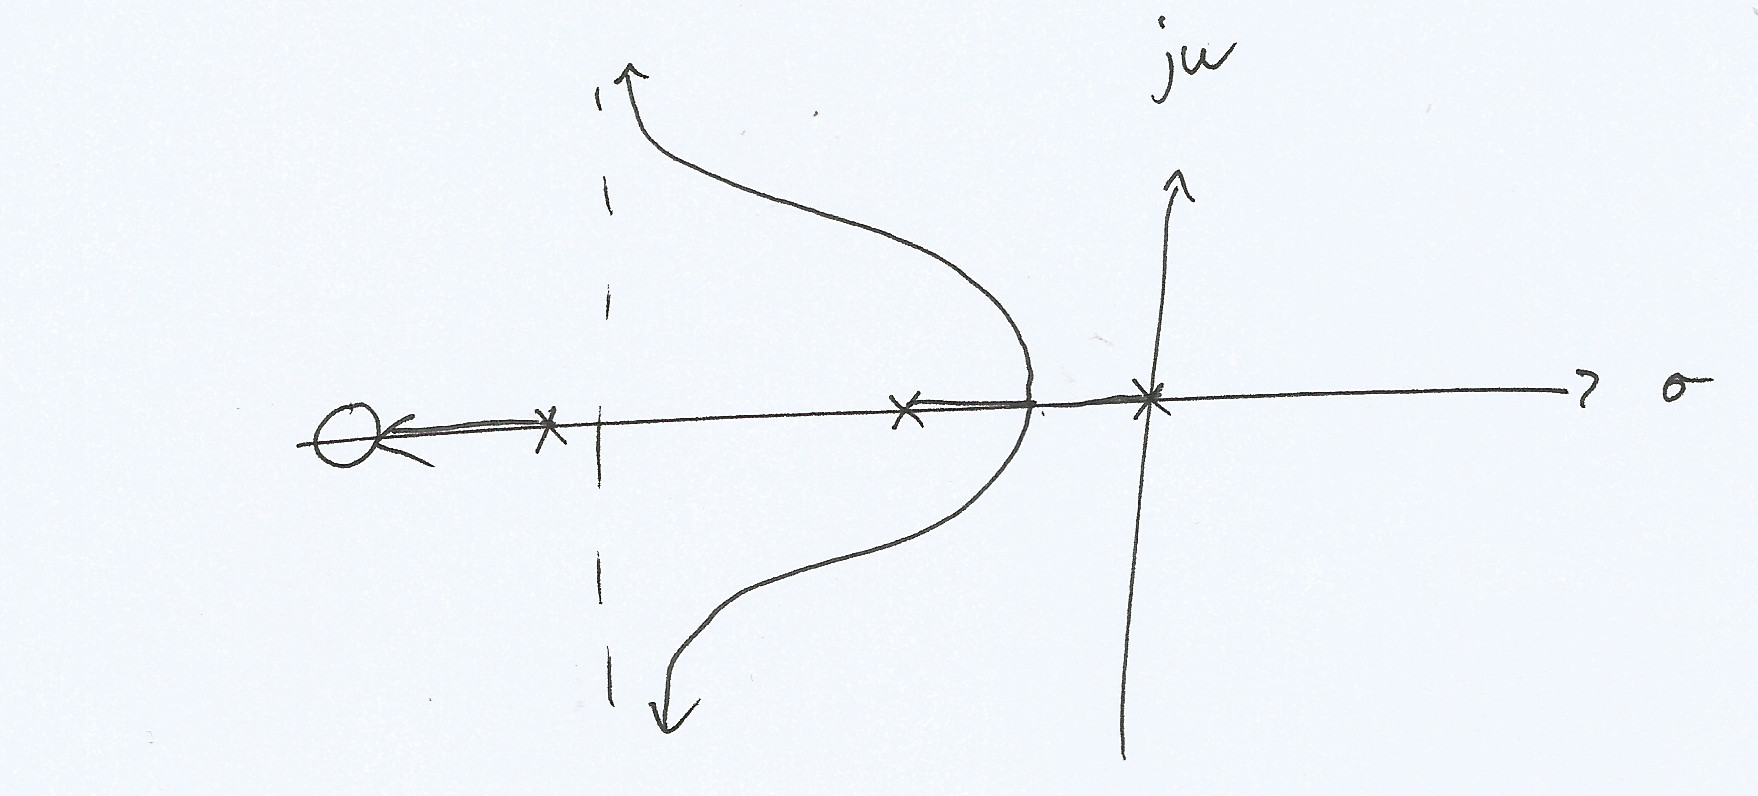 jω
σ